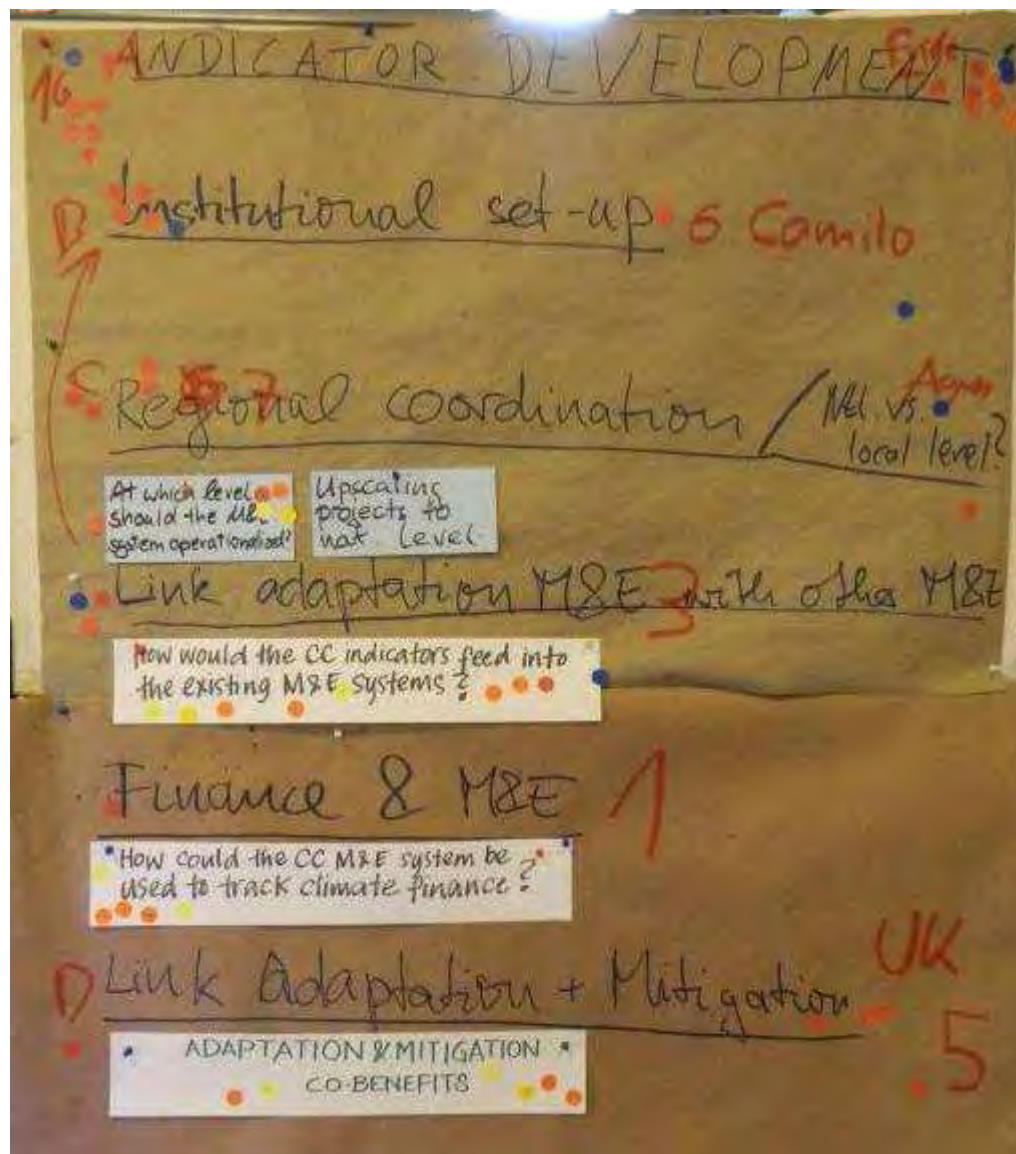 16
INDICATOR DEVELOPMENT
B Institutional set-up 6 Camilo
C Regional coordination / Ntl. vs.
local level?
At which level
should the M&E
system operationalised?
Upscaling
projects to
nat level
Link adaptation M&E with other M&E
3
How would the CC indicators feed into
the existing M&E systems?
Finance & M&E 1
How could the CC M&E system be
used to track climate finance?
UK
D Link Adaptation + Mitigation
5
ADAPTATION & MITIGATION
CO-BENEFITS